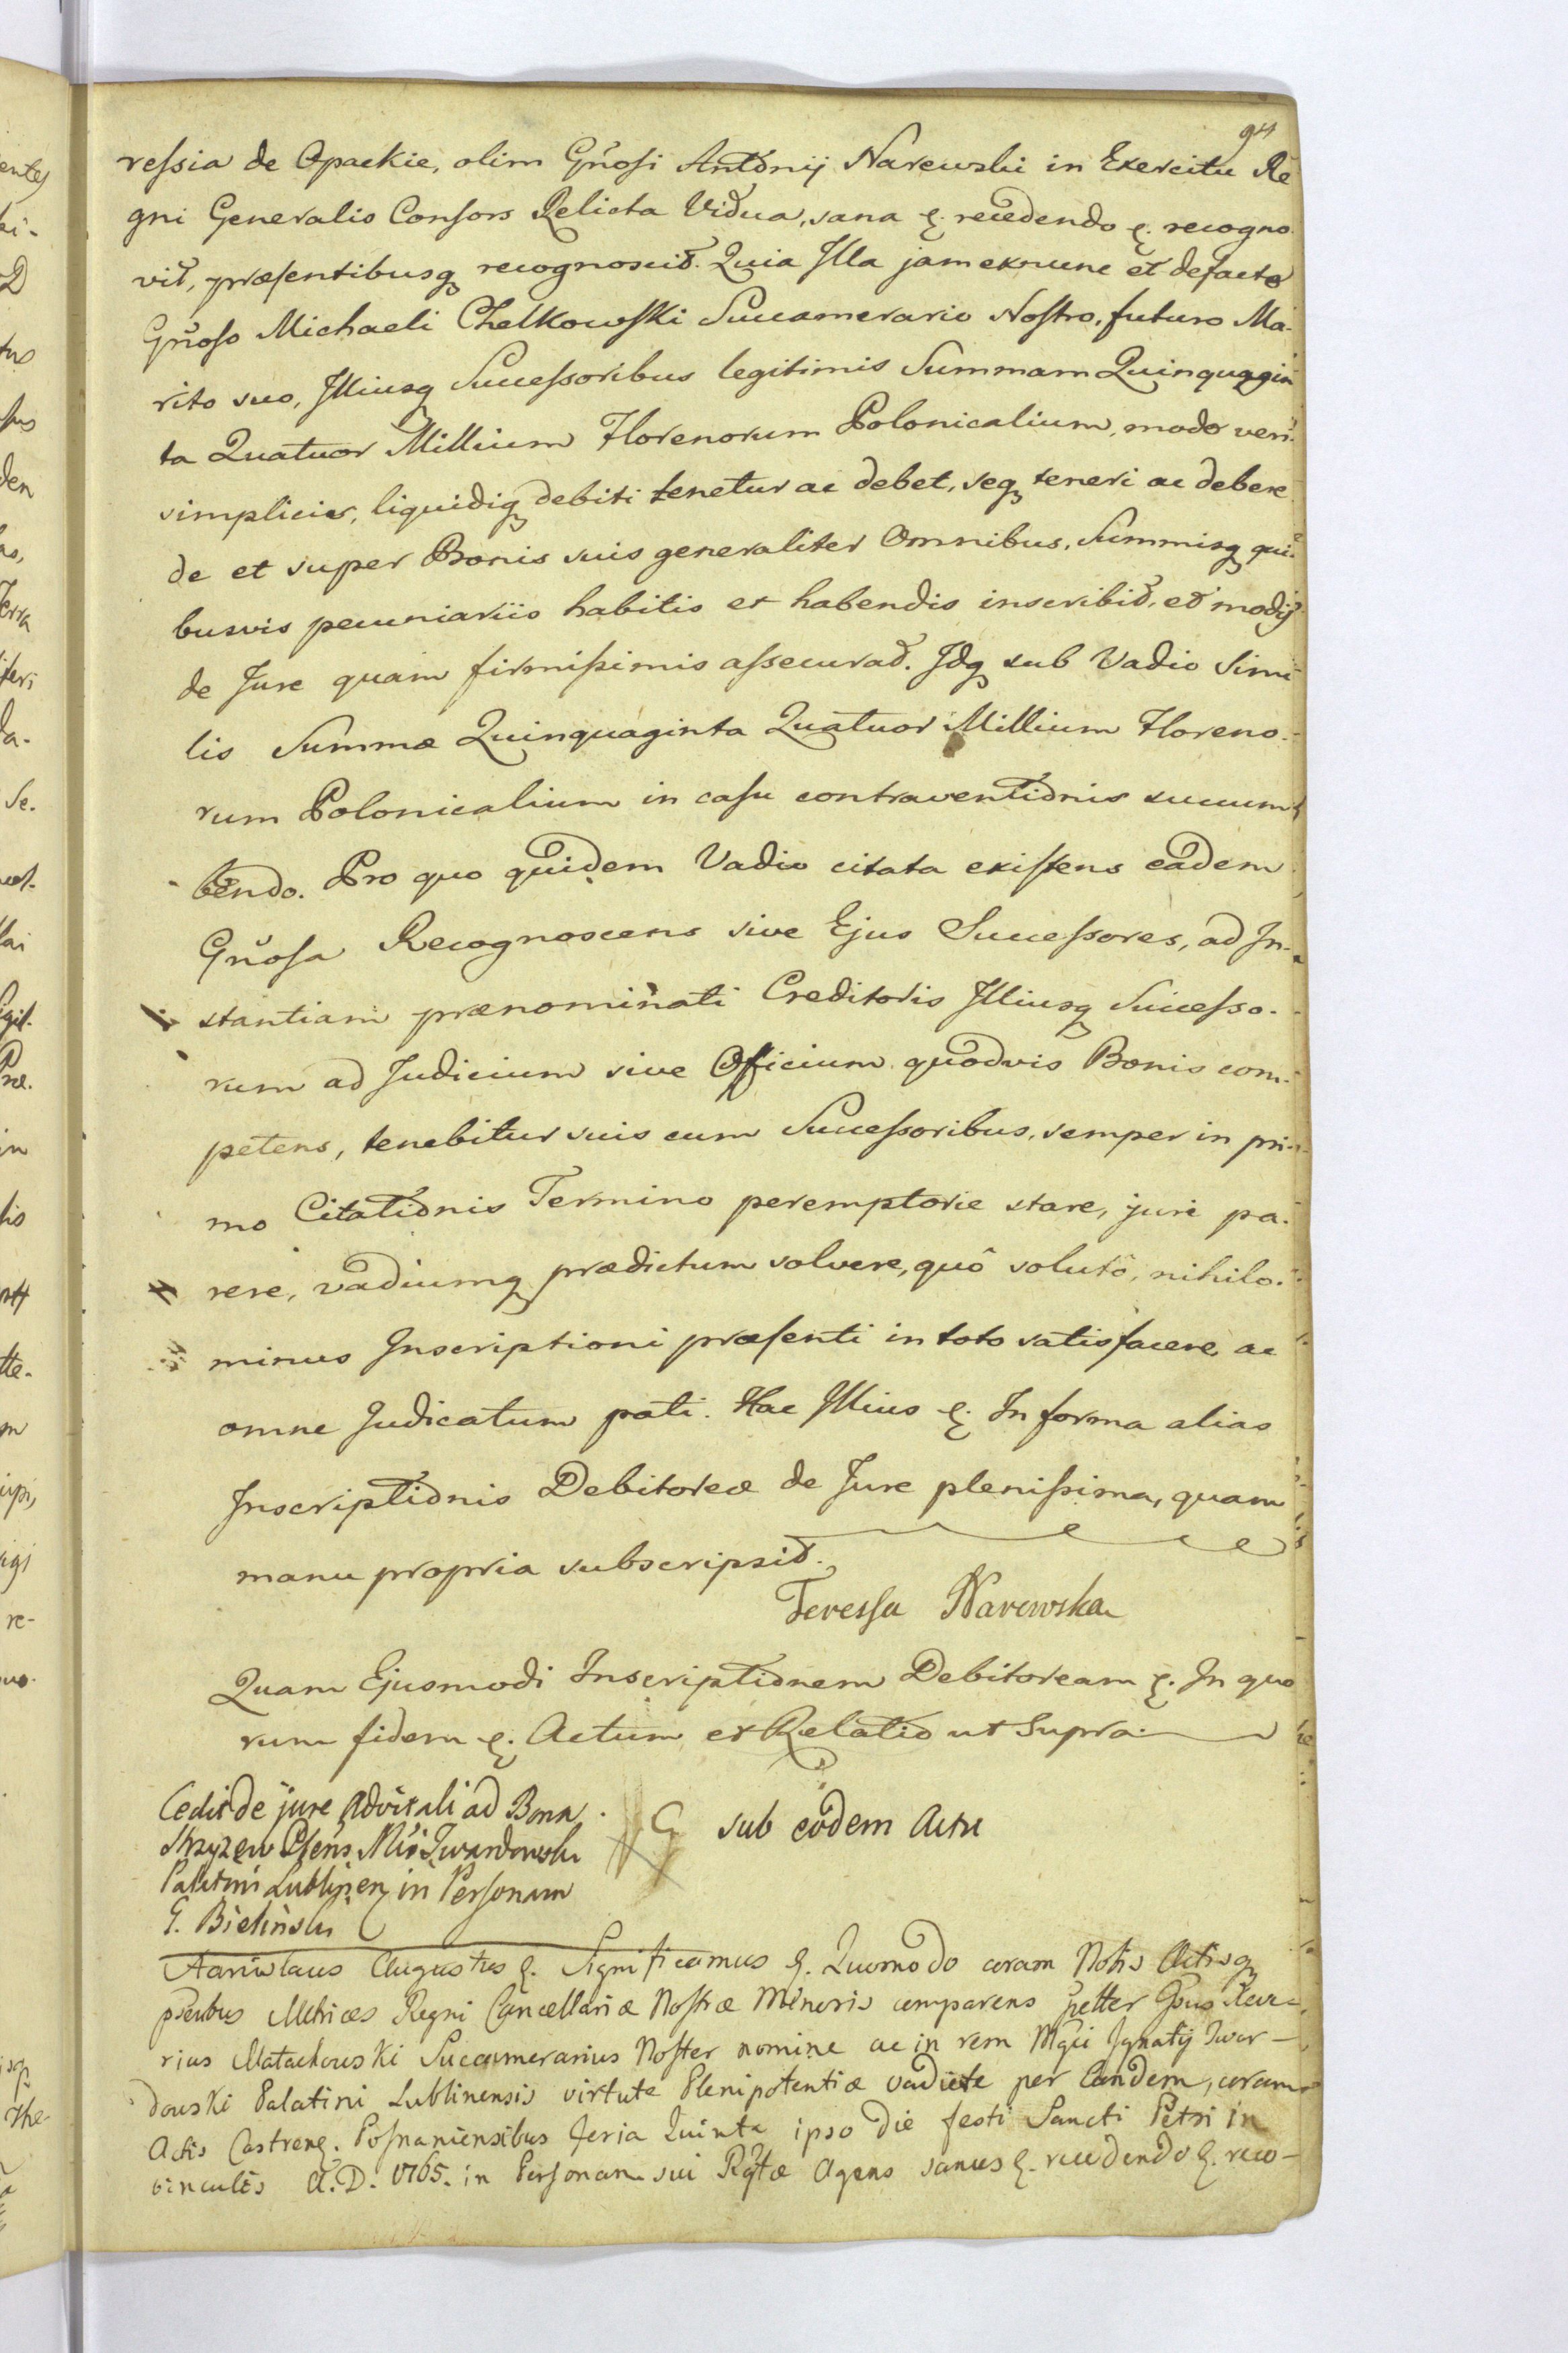 94
ressia de Opackie, olim Gnosi Antonij Narewski in Exercitu Re
gni Generalis Consors Relicta Vidua, sana &. recedendo &. recogno
vit, præsentibusq recognoscit. Quia Illa jam exnunc et defacto
Gnoso Michaeli Chelkowski Succamerario Nostro, futuro Ma-
rito suo, Illiusq Successoribus legitimis Summam Quinquagin
ta Quatuor Millium Florenorum Polonicalium, modo veri
simplicis, liquidiq debiti tenetur ac debet, seq teneri ac debere
de et super Bonis suis generaliter Omnibus, Summisq qui-
busvis pecuniariis habitis et habendis inscribit, et modis
de Jure quam firmissimis assecurat. Idq sub Vadio Simi-
lis Summæ Quinquaginta Quatuor Millium Floreno-
rum Polonicalium in casu contraventionis succum
bendo. Pro quo quidem Vadio citata existens eadem
Gnosa Recognoscens sive Ejus Successores, ad In-
stantiam prænominati Creditoris Illiusq Successo-
rum ad Judicium sive Officium quodvis Bonis com-
petens, tenebitur suis cum Successoribus, semper in pri-
mo Citationis Termino peremptorie stare, juri pa-
rere, vadiumq prædictum solvere, quô solutô, nihilo-
minus Inscriptioni præsenti in toto satisfacere, ac
omne Judicatum pati. Hac Illius &. In forma alias
Inscriptionis Debitoreæ de Jure plenissima, quam
manu propria subscripsit.
Teressa Narewska
Quam Ejusmodi Inscriptionem Debitoream &. In quo
rum fidem &. Actum et Relatio ut Supra
Cedit de jure Advitali ad Bona
Strzyzew Plens Mci Twardowski
Palatini Lublinen in Personam
G. Bielinski
sub eodem Actu
Stanislaus Augustus &. Significamus &. Quomodo coram Notis Actisq
psentibus Metrices Regni Cancellariæ Nostræ Minoris comparens pstter Gsus Xave-
rius Matachowski Succamerarius Noster nomine ac in rem Mgci Ignatij Twar-
dowski Palatini Lublinensis virtute Plenipotentiæ per Eundem, coram
Actis Castren. Posnaniensibus Feria Quinta ipso die festi Sancti Petri in
vinculis A.D. 1765. in Personam sui Rgtæ Agens sanus &. recedendo &. reco-